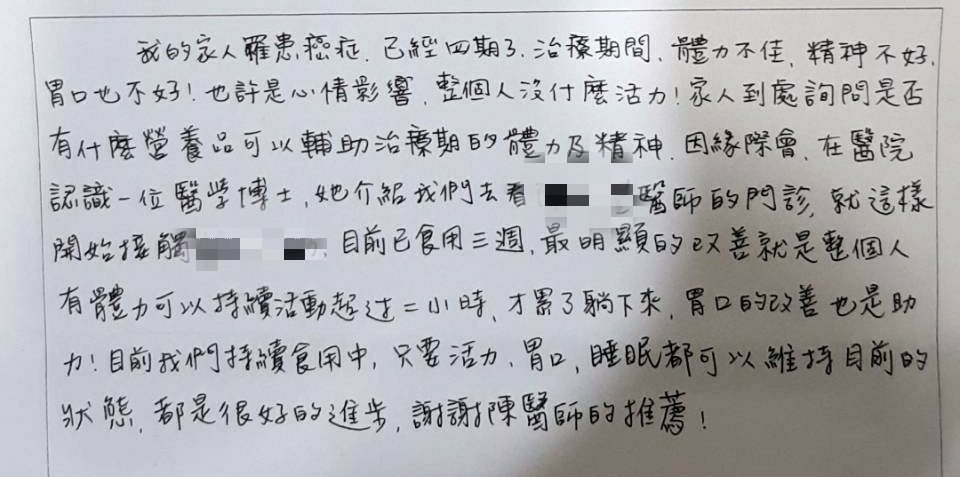 我的家人罹患癌症、已經四期了、治療期間、體力不佳、精神不好、
胃口也不好！也許是心情影響、整個人沒什麼活力！家人到處詢問是否
有什麼營養品可以輔助治療期的體力及精神、因緣際會、在醫院
認識一位醫學博士、她介紹我們去看 醫師的門診、就這樣
開始接觸 、目前已食用三週、最明顯的改善就是整個人
有體力可以持續活動超过二小時、才累了躺下來、胃口的改善也是助
力！目前我們持續食用中，只要活力、胃口、睡眠都可以維持目前的
狀態、都是很好的進步、謝謝陳醫師的推薦！